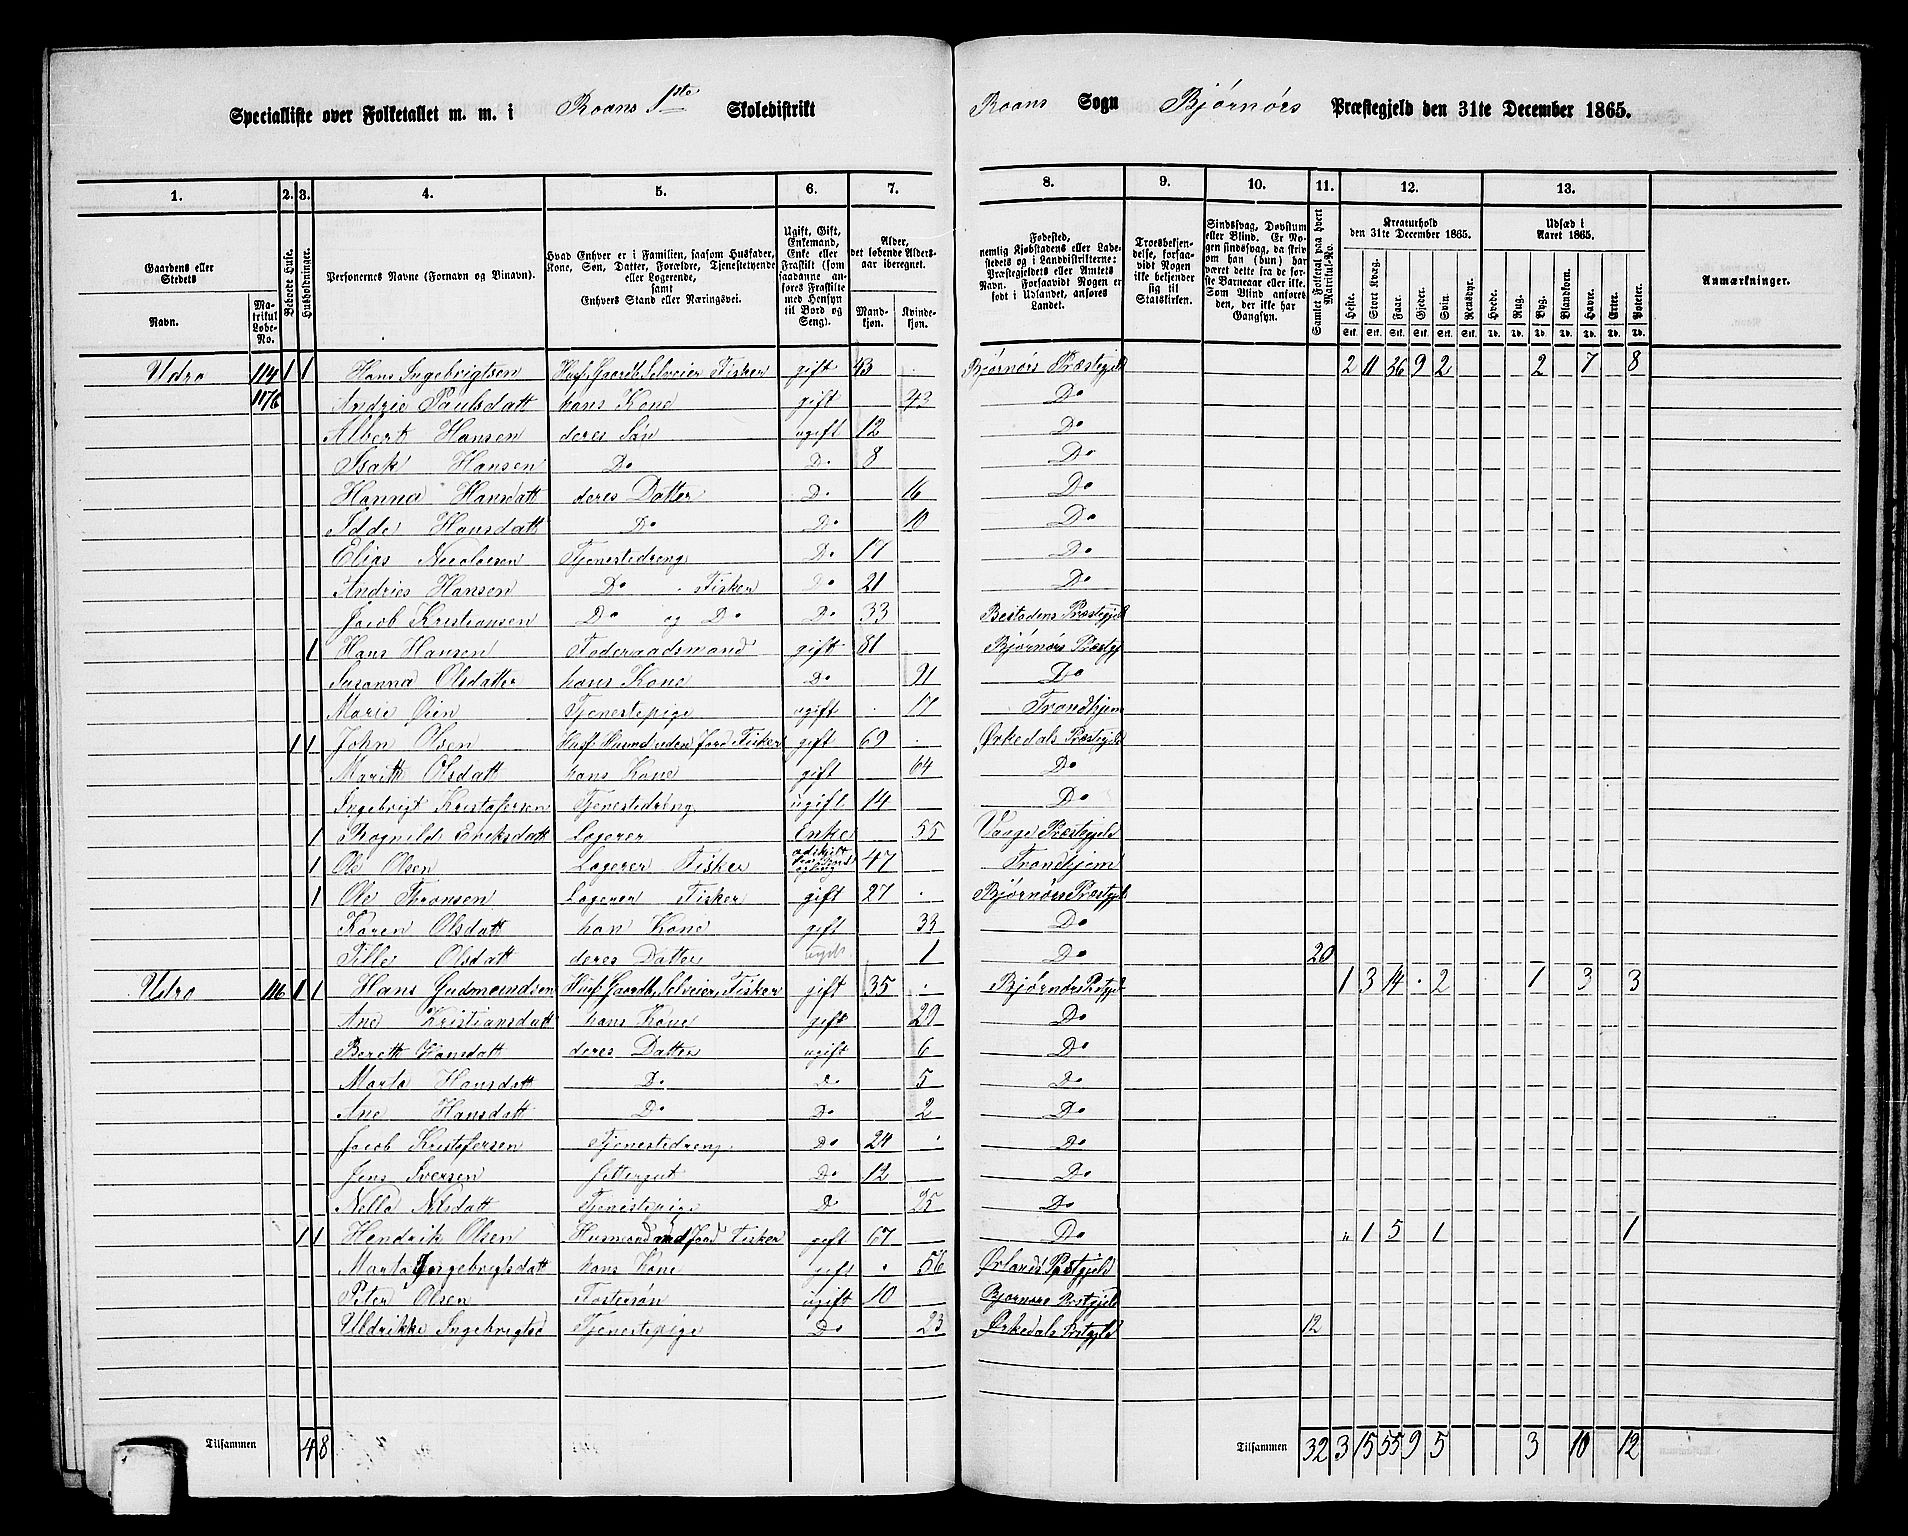 Specialliste over Folketallet m. m. i Roans 1ste Skoledistrikt Roans Sogn Bjørnørs Præstegjeld den 31te December 1865.
1. 2. 3. 4. 5. 6. 7. 8. 9. 10. 11. 12. 13.
Gaardens eller Stedets Navn. Matrikul Løbe-No. Beboede Huse. Husholdninger. Personernes Navne (Fornavn og Tilnavn). Hvad Enhver er i Familien, saasom Husfader, Kone, Søn, Datter, Forældre, Tjenestetyende eller Logerende, samt Enhvers Stand eller Næringsvei. Ugift, Gift, Enkemand, Enke eller Fraskilt (som saadanne anføres Fraskilte med Hensyn til Bord og Seng). Alder, det løbende Alders-aar iberegnet. Mand-kjøn. Kvinde-kjøn.
Fødested, nemlig Kjøbstadens eller Ladestedets og i Landdistrikterne: Præstegjeldets eller Amtets Navn. Forsaavidt Nogen er født i Udlandet, anføres Landet. Troesbekjendelse, forsaavidt Nogen ikke bekjender sig til Statskirken. Sindssvag, Døvstum eller Blind. Er Nogen sindssvag, da skrives om han (hun) har været dette fra de første Barneaar eller ikke. Som Blind anføres den, der ikke har Gangsyn. Samlet Folketal paa hvert Matrikul-No. Kreaturhold den 31te December 1865. Heste. Stort Kvæg. Faar. Gjeder. Svin. Rensdyr. Udsæd i Aaret 1865. Hvede. Rug. Byg. Blandkorn. Havre. Erter. Poteter. Anmærkninger.
Stk. Stk. Stk. Stk. Stk. Stk. Td. Td. Td. Td. Td. Td. Td.
Udro 114 1 1 Hans Ingebrigtsen Husf. Gaardb. Selveier Fisker gift 43 Bjørnørs Præstegjeld 2 11 36 9 2 2 7 8
117b Andrie Paulsdatt hans Kone gift 43 Do
Albert Hansen deres Søn ugift 12 Do
Isak Hansen Do Do 8 Do
Hanna Hansdatt deres Datter Do 16 Do
Idde Hansdatt Do Do 10 Do
Elias Nicolaisen Tjenestedreng Do 17 Do
Andries Hansen Do Fisker Do 21 Do
Jacob Kristiansen Do og Do Do 33 Bestadens Præstegjeld
1 Hans Hansen Foderaadsmand gift 81 Bjørnørs Præstgj
Susanna Olsdatter hans Kone Do Do
Marie Øien Tjenestepige ugift 17 Trondhjem
1 1 John Olsen Husf. Husmd uden Jord Fisker gift 69 Ørkedals Præstegjeld
Maritt Olsdatt hans Kone gift 64 Do
Ingebrigt Kristofersen Tjenestedreng ugift 14 Do
1 Rognild Eriksdatt Logerer Enke 55 Vaage Præstegjeld
1 Ole Olsen Logerer Fisker 47 Trondhjem
1 Ole Thronsen Logerer Fisker gift 27 Bjørnørs Præstegjeld
Karen Olsdatt han Kone gift 33 Do
Sille Olsdatt deres Datter ugift 1 Do 20
Udro 116 1 1 Hans Gudmundsen Husf. Gaardb. Selveier, Fisker gift 35 Bjørnørs Præstgjeld 1 3 14 2 1 3 3
Ane Kristiansdatt hans Kone gift 29 Do
Berett Hansdatt deres Datter ugift 6 Do
Marta Hansdatt Do Do 5 Do
Ane Hansdatt Do Do 2 Do
Jacob Kristofersen Tjenestedreng Do 24 Do
Jens Iversen Gittergut Do 12 Do
Nella Nilsdatt Tjenestepige Do 25 Do
1 1 Hendrik Olsen Husmand med Jord Fisker gift 67 Do " 1 5 1 1
Marta Ingebrigtsdatt hans Kone gift 56 Ørlands Præstgjeld
Peter Olsen Fostersøn ugift 10 Bjørnørs Præstgjeld
Uldrikke Ingebrigtsd Tjenestepige Do 23 Ørkedals Præstgjeld 12
Tilsammen 4 8 Tilsammen 32 3 15 55 9 5 3 10 12